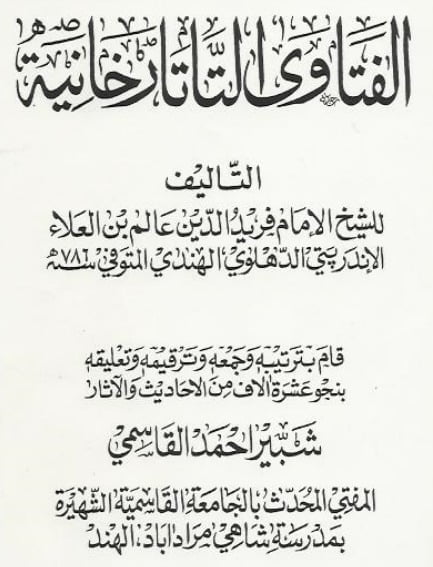 الفتاوى التاتارخانية
التأليف
للشيخ الإمام فريد الدين عالم بن العلاء
الإندربتي الدهلوي الهندي المتوفى سنة ٧٨٦ه
قام بترتيبه وجمعه وترقيمه وتعليقه
بنحو عشرة آلاف من الأحاديث والآثار
شبير أحمد القاسمي
المفتي المحدث بالجامعة القاسمية الشهيرة
بمدرسة شاهي مراداباد، الهند